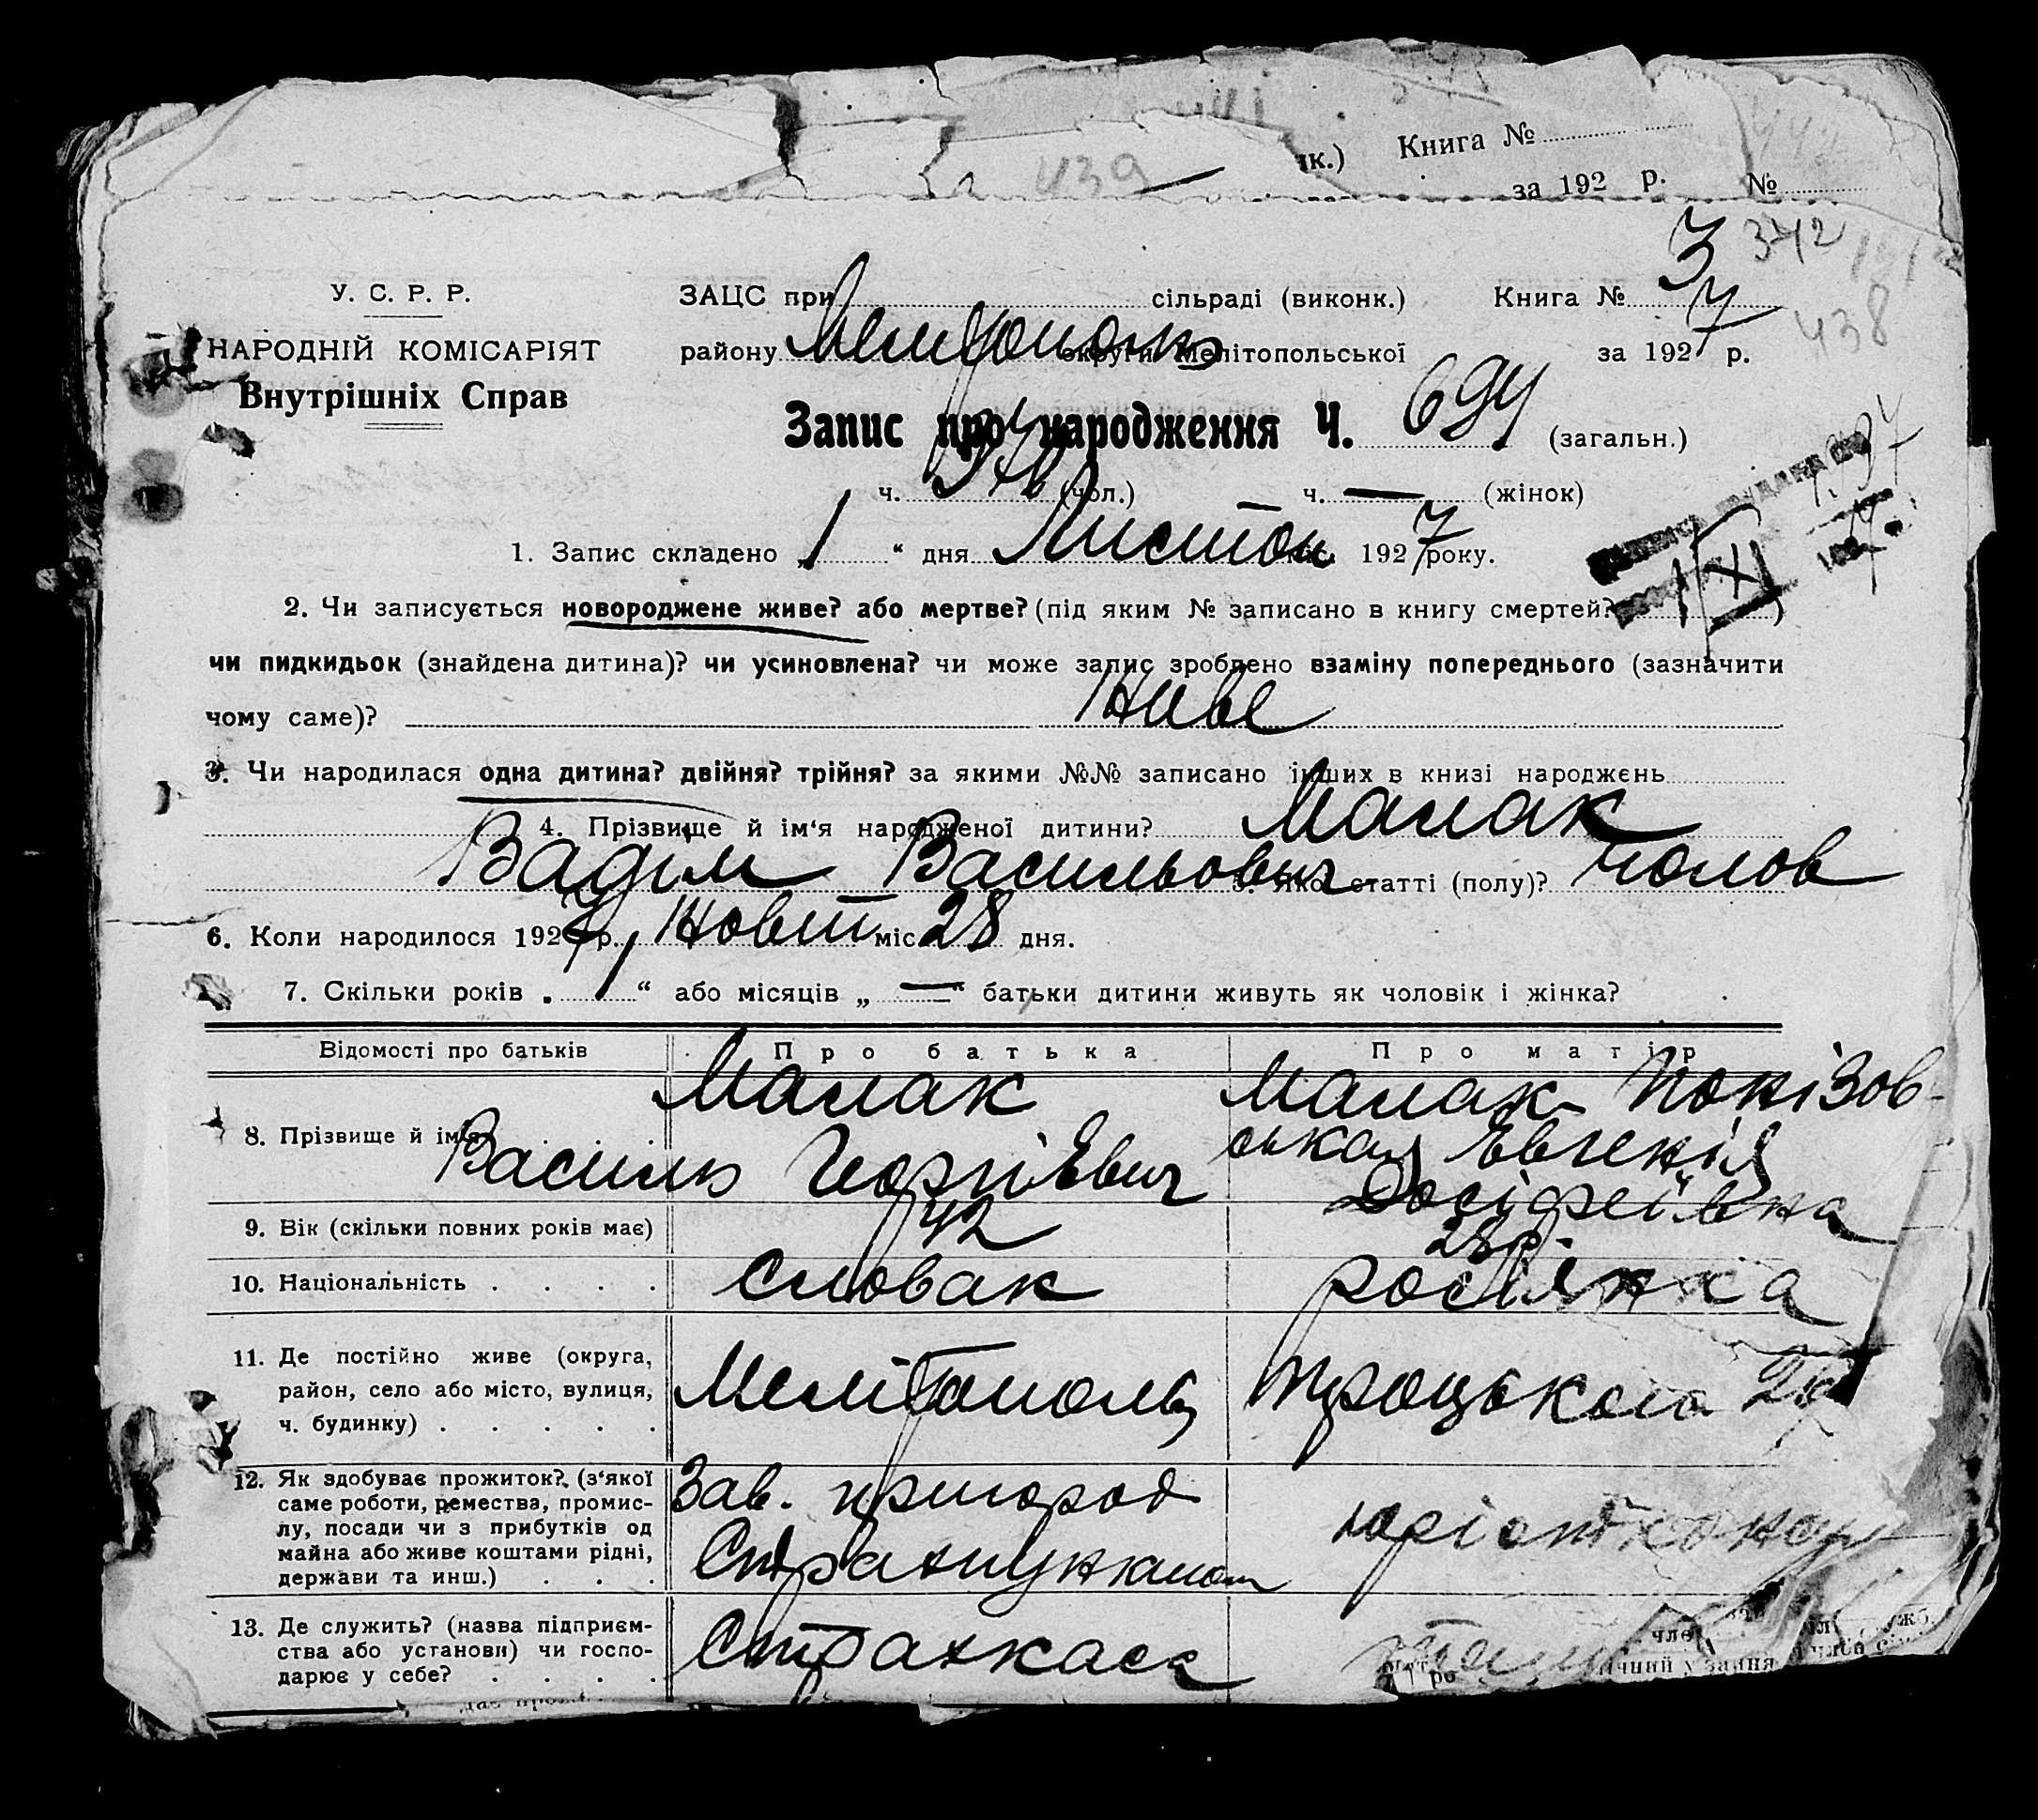 439
нк.) Книга №
за 192 р. №
442
342
У. С. Р. Р.
ЗАЦС при сільраді (виконк.) Книга № 3
НАРОДНІЙ КОМІСАРІЯТ
Внутрішніх Справ
району Мелітополь округи Мелітопольської за 1927 р.
438
Запис про народження Ч. 694 (загальн.)
ч. (чол.) ч. — (жінок)
1. Запис складено „ 1 “ дня Листоп міс. 1927 року.
2. Чи записується новороджене живе? або мертве? (під яким № записано в книгу смертей? )
чи пидкидьок (знайдена дитина)? чи усиновлена? чи може запис зроблено взаміну попереднього (зазначити
чому саме)? Живе
3. Чи народилася одна дитина? двійня? трійня? за якими №№ записано інших в книзі народжень
4. Прізвище й ім‘я народженої дитини? Малак
Вадім Васильович 5. Якої статті (полу)? Чолов
6. Коли народилося 1927 р. Жовт міс 28 дня.
7. Скільки років „ 1 “ або місяців „ — “ батьки дитини живуть як чоловік і жінка?
Відомості про батьків Про батька Про матір
8. Прізвище й ім‘я Малак Василь Георгіевич Малак Понізовськая Евгенія Досіфеївна
9. Вік (скільки повних років має) 42 28 р.
10. Національність . . . . Словак росіянка
11. Де постійно живе (округа,
район, село або місто, вулиця,
ч. будинку) . . . . . Мелітополь Троцького
12. Як здобуває прожиток? (з‘якої
саме роботи, ремества, промис-
лу, посади чи з прибутків од
майна або живе коштами рідні,
держави та инш.) . . . Зав. пригород Страхпунктом
13. Де служить? (назва підприєм-
ства або установи) чи госпо-
дарює у себе? . . . . Страхкаса